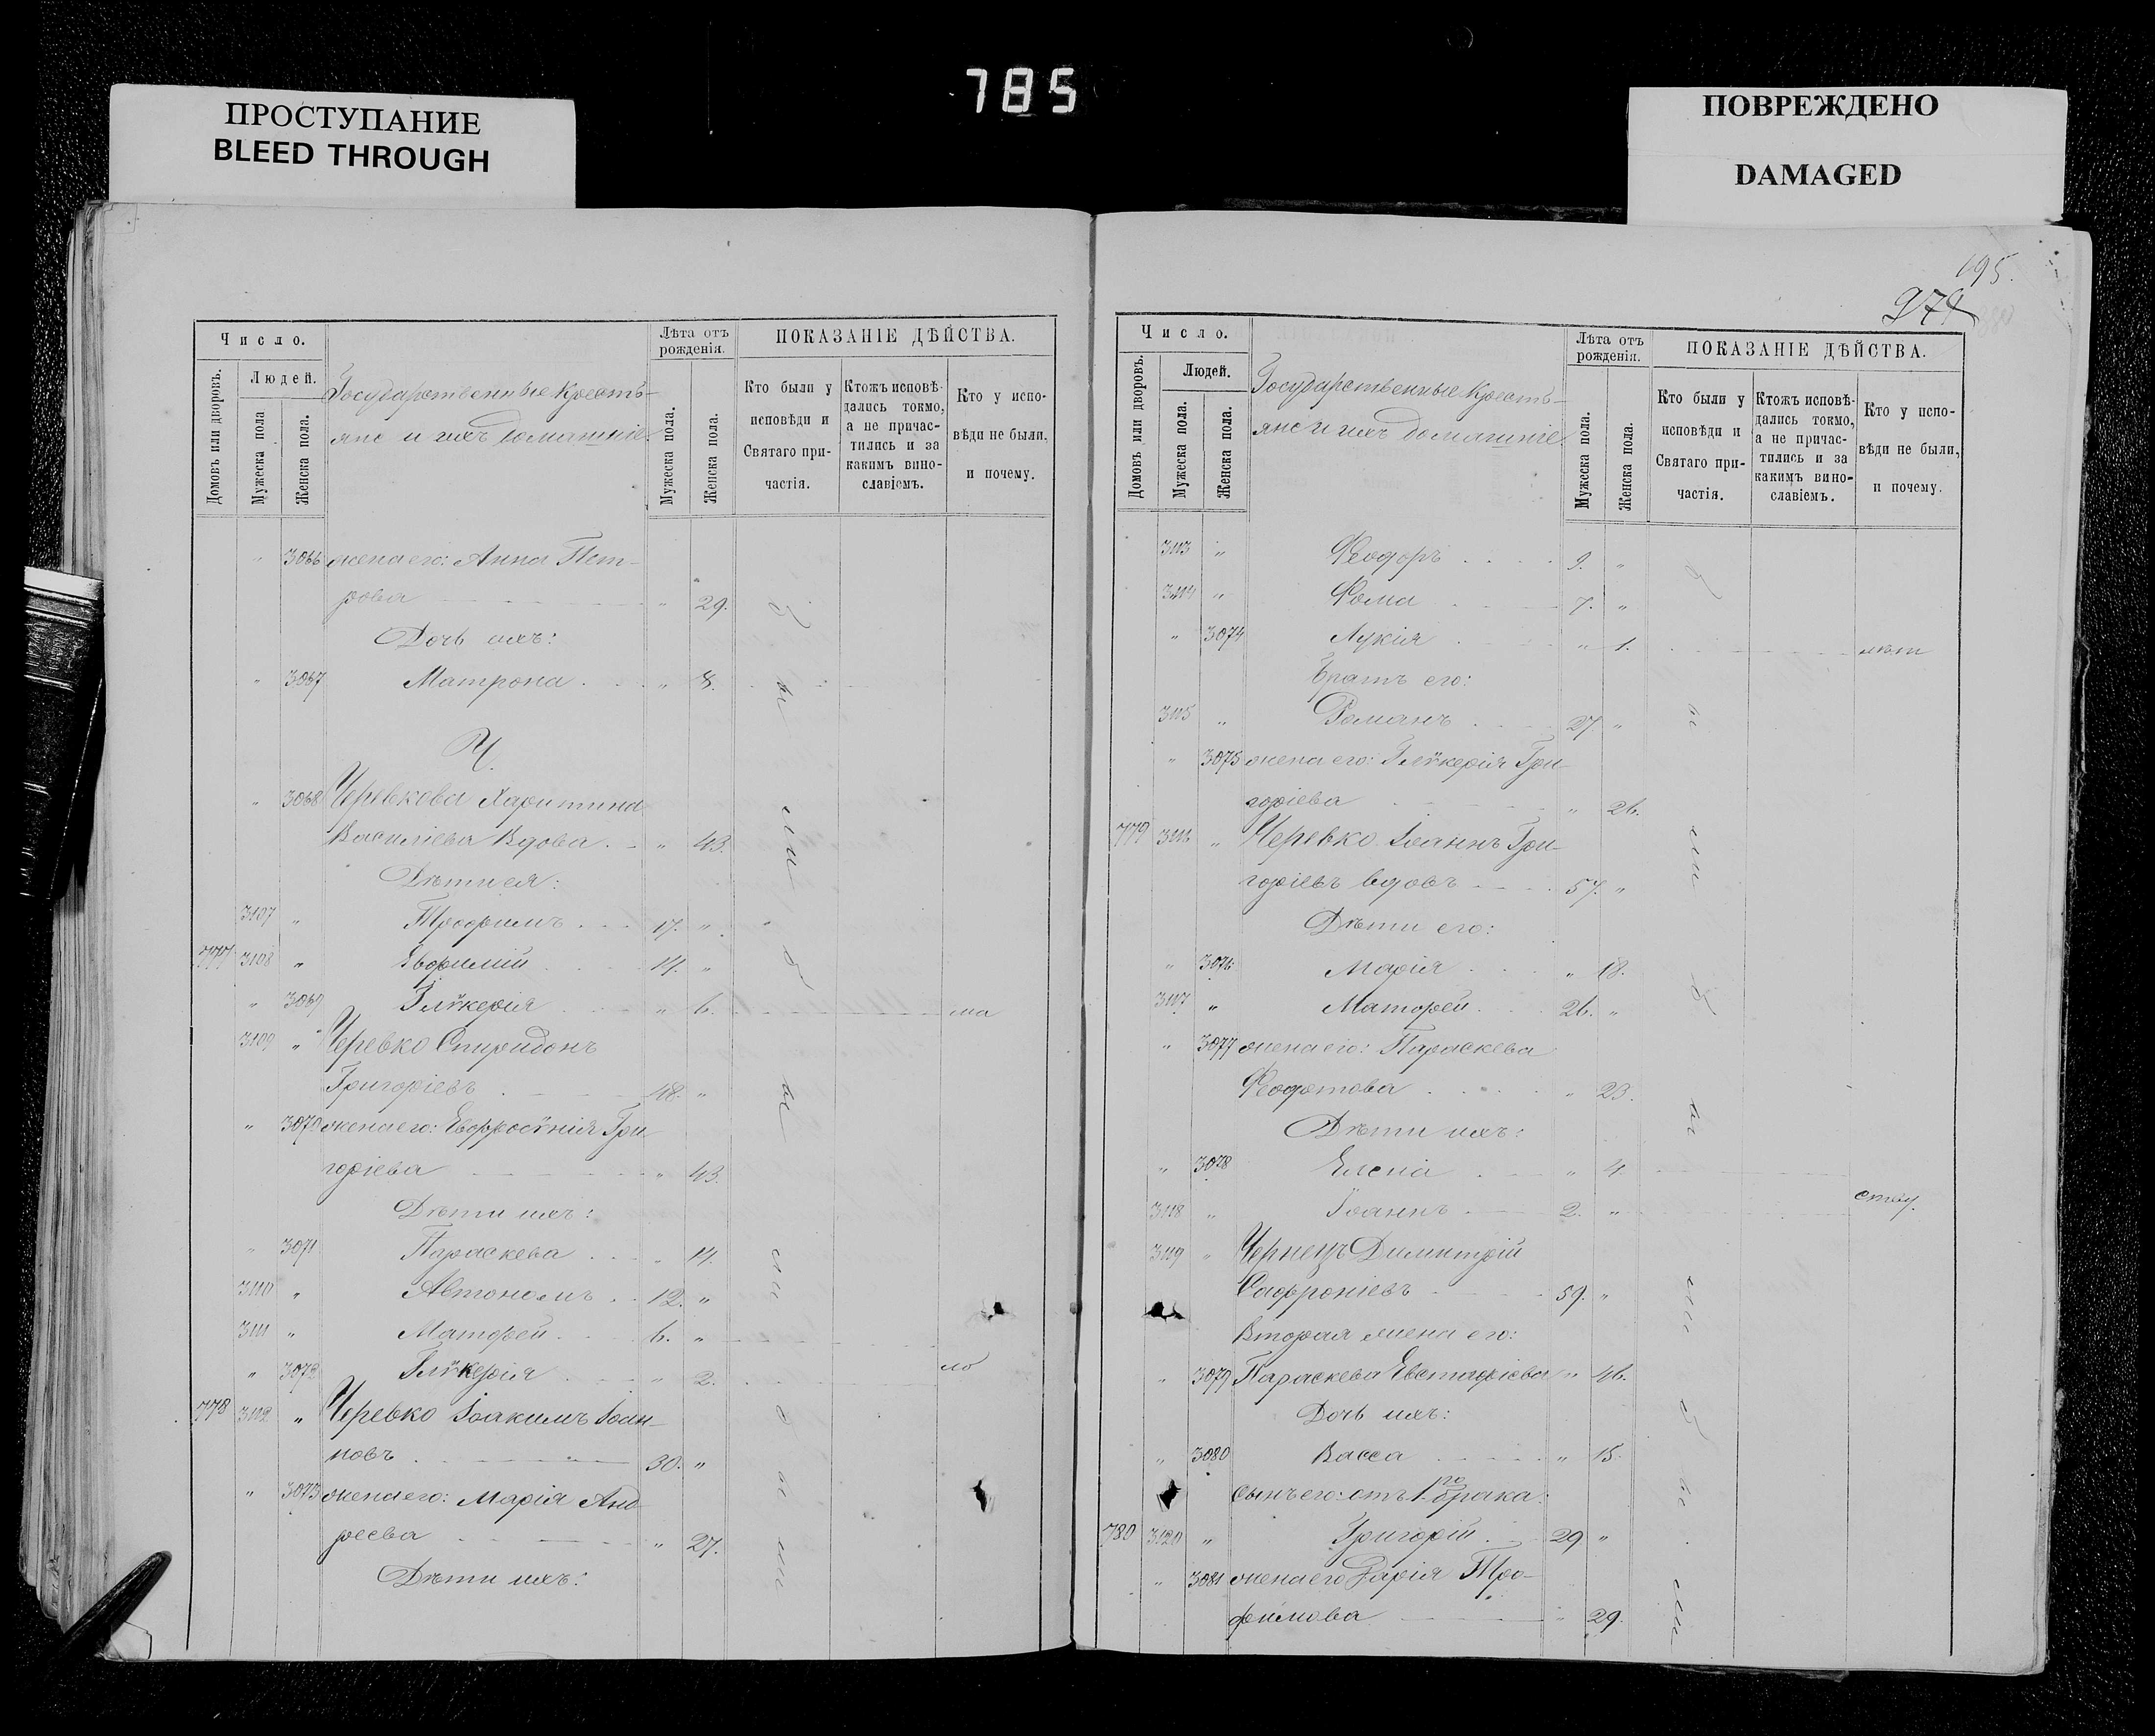 785
ПРОСТУПАНИЕ
BLEED THROUGH
ПОВРЕЖДЕНО
DAMAGED
Число.
Людей.
Домовъ или дворовъ.
Мужеска пола
Женска пола.
Государственные Кресть-
яне и ихъ домашніе.
Лѣта отъ
рожденія.
Мужеска пола.
Женска пола.
ПОКАЗАНІЕ ДѢЙСТВА.
Кто были у
исповѣди и
Святаго при-
частія.
Ктожъ исповѣ-
дались токмо,
а не причас-
тились и за
какимъ вино-
славіемъ.
Кто у испо-
вѣди не были,
и почему.
" 3066 жена его: Анна Пет-
рова " 29.
Дочь ихъ:
" 3067 Матрона " 8.
Ч.
" 3068 Черевкова Харитина
Василіева Вдова " 43.
Дѣти ея:
3107 " Трофимъ 17. "
777 3108 " Евфимій 14. "
" 3069 Глѵкерія " 6. ма
3109 " Черевко Спиридонъ
Григоріевъ 48. "
" 3070 жена его: Евфросѵнія Гри
горіева " 43.
Дѣти ихъ:
" 3071 Параскева " 14.
3110 " Автономъ 12. "
3111 " Матфей 6. "
" 3072 Глѵкерія " 2. ло
778 3112 " Черевко Іоакимъ Іоан-
новъ 30. "
" 3073 жена его: Марія Анд
реева " 27.
Дѣти ихъ:
195.
974
Число.
Людей.
Домовъ или дворовъ.
Мужеска пола.
Женска пола.
Государственные Кресть-
яне и ихъ домашніе.
Лѣта отъ
рожденія.
Мужеска пола.
Женска пола.
ПОКАЗАНІЕ ДѢЙСТВА.
Кто были у
исповѣди и
Святаго при-
частія.
Ктожъ исповѣ-
дались токмо,
а не причас-
тились и за
какимъ вино-
славіемъ.
Кто у испо-
вѣди не были,
и почему.
3113 " Феодоръ 9. "
3114 " Фома 7. "
" 3074 Лукія " 1. лѣт
Братъ его:
3115 " Романъ 27. "
" 3075 жена его: Глѵкерія Гри-
горіева " 26.
779 3116 " Черевко Іоаннъ Гри-
горіевъ вдовъ 57. "
Дѣти его:
" 3076 Марія " 18.
3117 " Матфей 26. "
" 3077 жена его: Параскева
Феодотова " 23.
Дѣти ихъ:
" 3078 Елена " 4.
ству.
3118 " Іоаннъ 2. "
3119 " Чернецъ Димитрій
Сафроніевъ 59. "
Вторая жена его:
" 3079 Параскева Евстафіева " 46.
Дочь ихъ:
" 3080 Васса " 15.
сынъ его: отъ 1го брака:
780 3120 " Григорій 29 "
" 3081 жена его Дарія Тро-
фимова " 29.